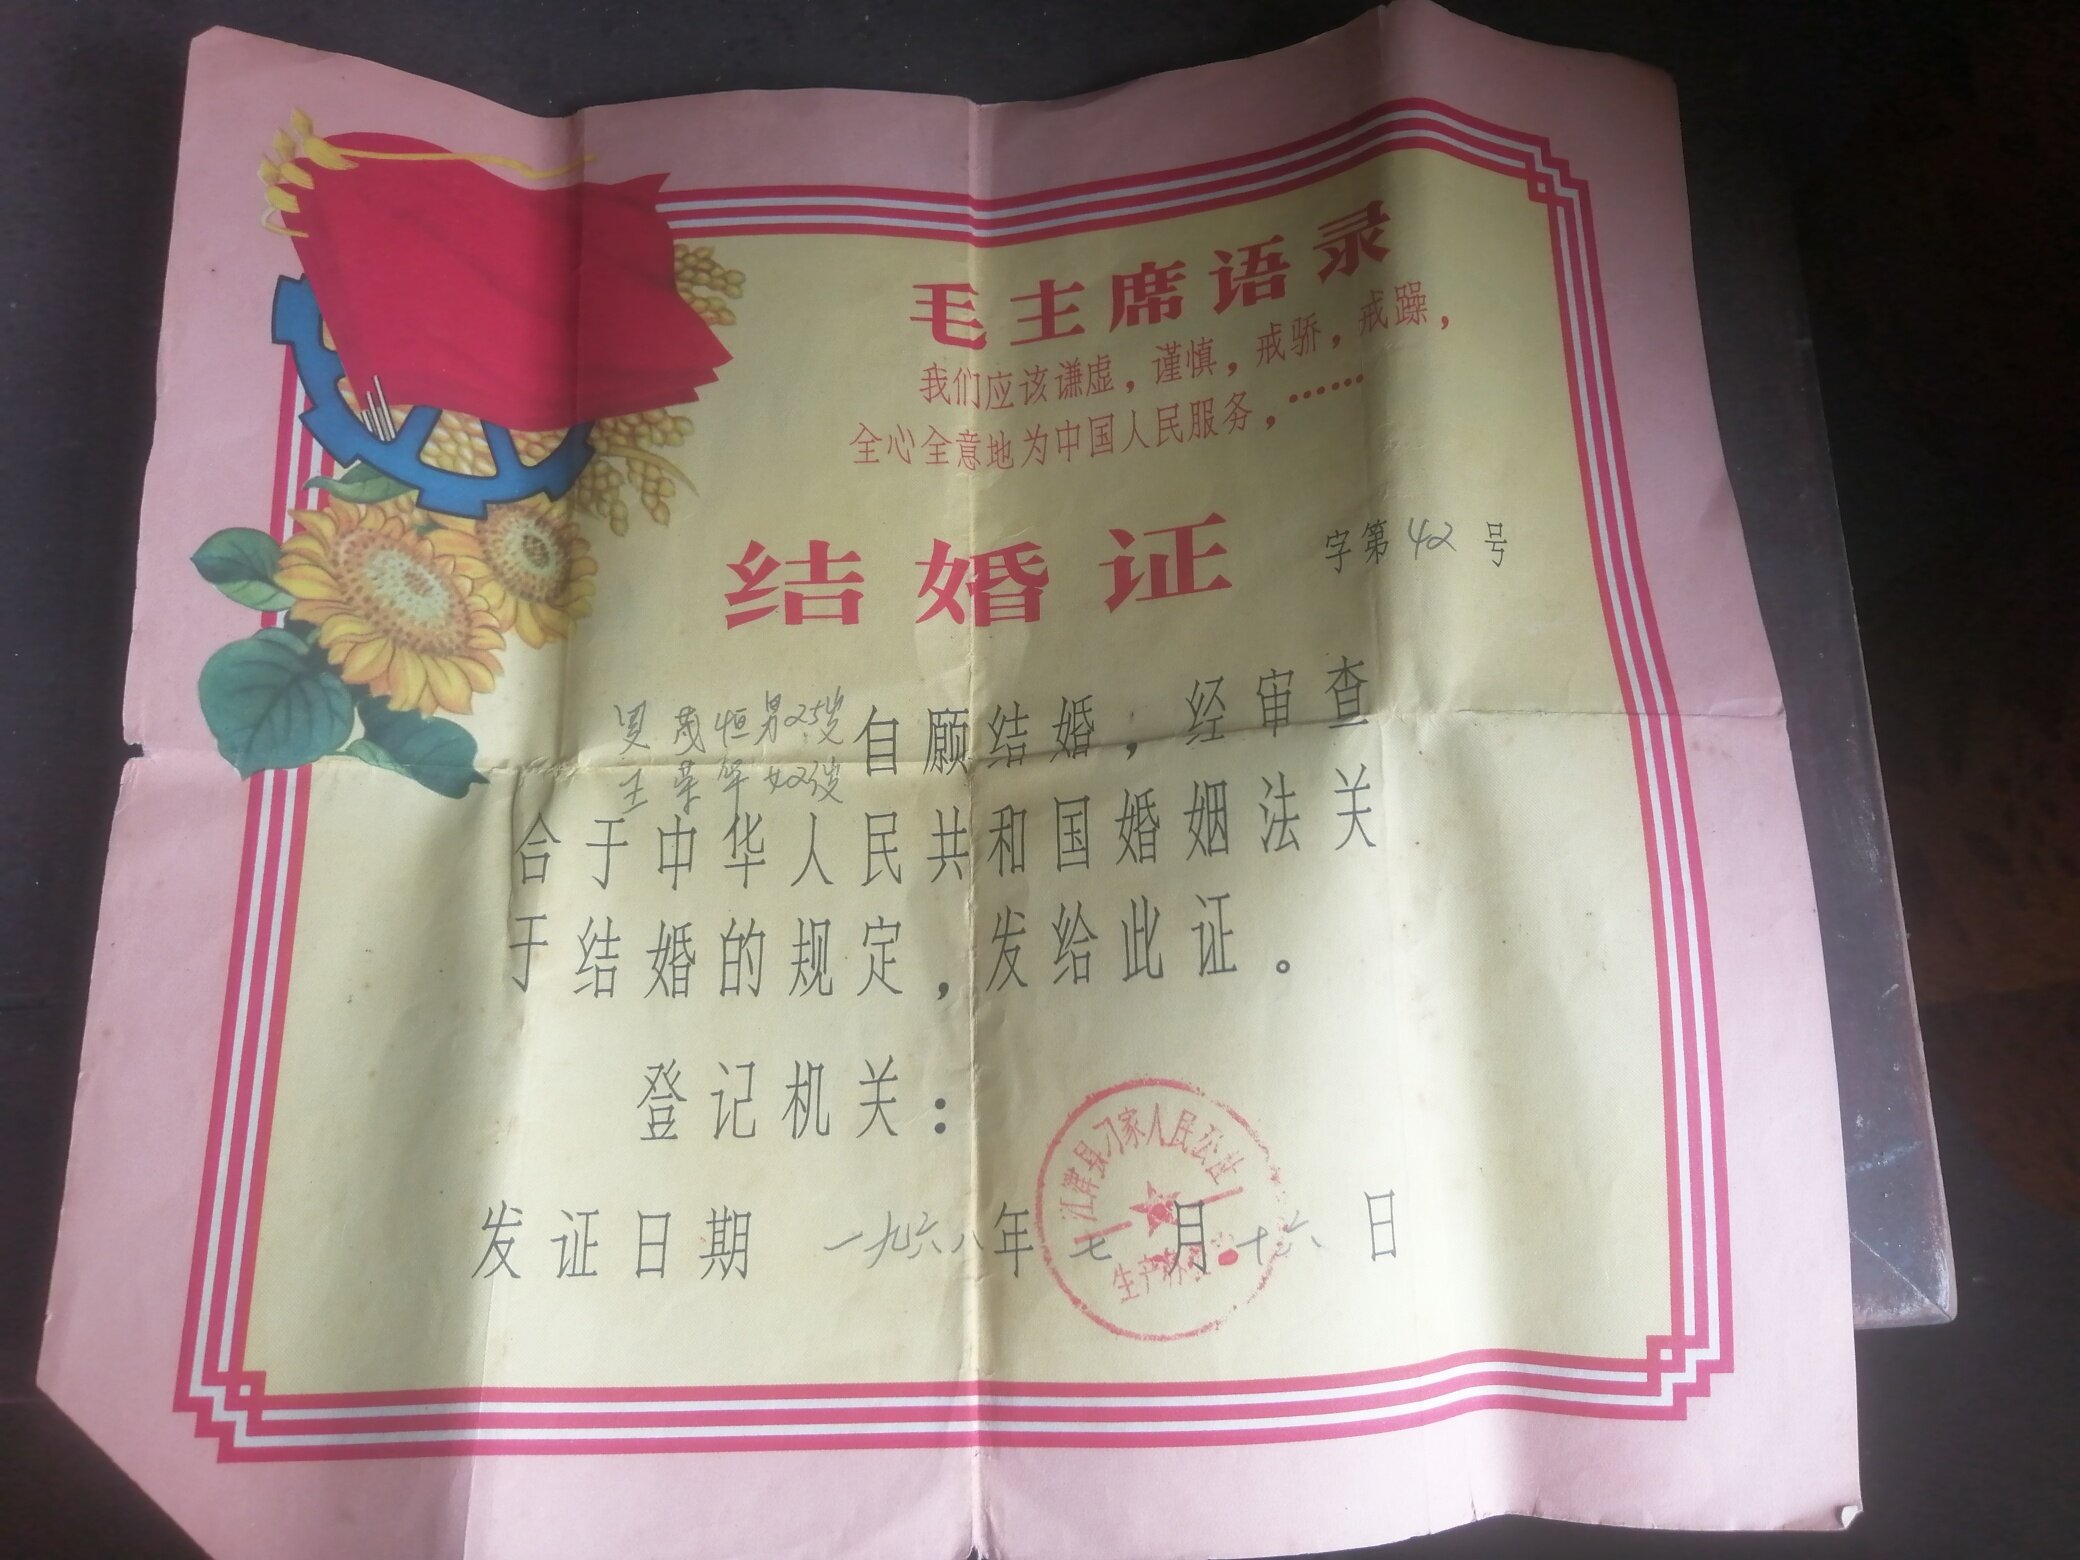 毛主席语录
我们应该谦虚，谨慎，戒骄，戒躁，
全心全意地为中国人民服务，……
结婚证 字第42号
茂恒男25岁
王荣华女23岁
自愿结婚，经审查
合于中华人民共和国婚姻法关
于结婚的规定，发给此证。
登记机关：
江津县刁家人民公社
生产
发证日期 一九六八年七月十六日